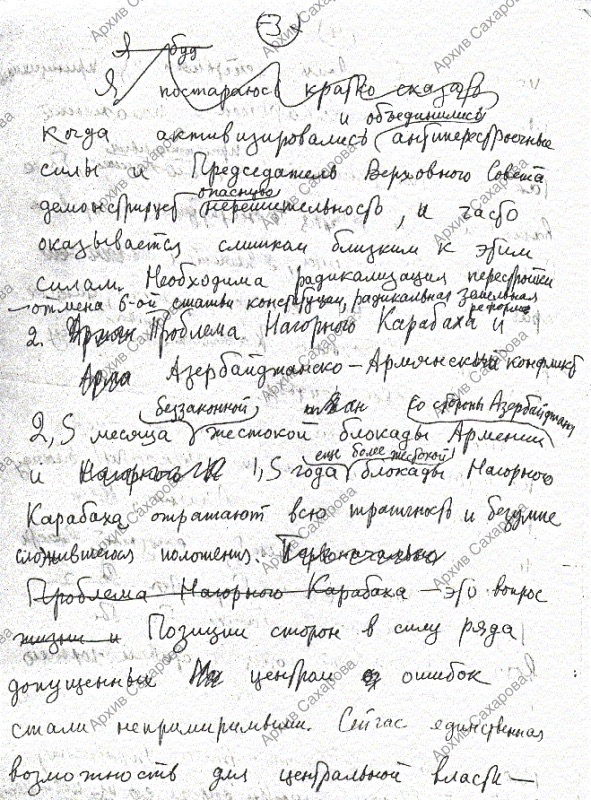 -3-
Я буд
Я постараюсь кратко сказать
и объединились
когда активизировались антиперестроечные
силы и Председатель Верховного Совета
опасную
демонстрирует нерешительность, и часто
оказывается слишком близким к этим
силам. Необходима радикализация перестройки
— отмена 6-ой статьи конституции, радикальная земельная
реформа
2. Проблема Нагорного Карабаха и
Азербайджанско-Армянский конфликт
беззаконной со стороны Азербайджана
2,5 месяца жестокой блокады Армении
еще более жестокой
и Нагорного К 1,5 года блокады Нагорного
Карабаха отражают всю трагичность и безумие
сложившегося положения. Первоначально
Проблема Нагорного Карабаха — это вопрос
жизни и Позиции сторон в силу ряда
допущенных центром ошибок
стали непримиримыми. Сейчас единственная
возможность для центральной власти —
Архив Сахарова